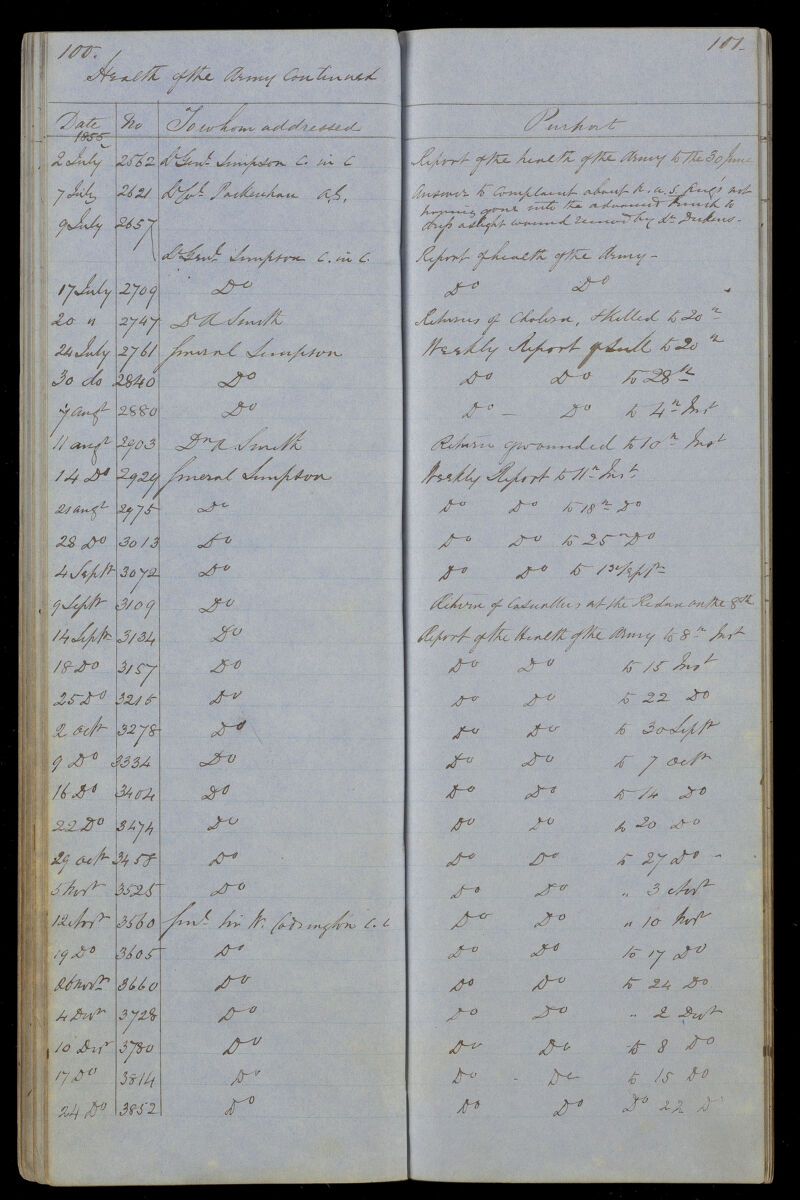 100.
101.
Health of the Army Continued
Date No To whom addressed Purport
1855
2 July 2562 Lt Genl Simpson C. in C Report of the health of the Army to the 30 June
7 July 2621 Lt Col Packenham A.G. Answer to Complaint about A. a. S. not
having gone into the advanced trench to
9 July 2657 a slight wound received by Dr Dickens.
Lt Genl Simpson C. in C. Report of health of the Army -
17 July 2709 Do Do Do
20 " 2747 Dr A Smith Returns of Cholera, & Killed to 20th
24 July 2761 General Simpson Weekly Report of Sick to 20th
30 do 2840 Do Do Do to 28th
7 augt 2880 Do Do - Do to 4th Inst
11 augt 2903 Dr A Smith Return of wounded to 10th Inst
14 Do 2929 General Simpson Weekly Report to 11th Inst.
21 augt 2975 Do Do Do to 18th Do
28 Do 3013 Do Do Do to 25th Do
4 Septr 3072 Do Do Do to 1st Septr
9 Septr 3109 Do Return of Casualties at the Redan on the 8th
14 Septr 3134 Do Report of the Health of the Army to 8th Inst
18 Do 3157 Do Do Do to 15 Inst
25 Do 3215 Do Do Do to 22 Do
2 Octr 3278 Do Do Do to 30 Septr
9 Do 3334 Do Do Do to 7 Octr
16 Do 3404 Do Do Do to 14 Do
22 Do 3474 Do Do Do to 20 Do
29 Octr 3458 Do Do Do to 27 Do -
5 Novr 3525 Do Do Do " 3 Novr
12 Novr 3560 Genl Sir W. Codrington C. C Do Do " 10 Novr
19 Do 3605 Do Do Do to 17 Do
26 Novr 3660 Do Do Do to 24 Do
4 Decr 3728 Do Do Do " 2 Decr
10 Decr 3780 Do Do Do to 8 Do
17 Do 3814 Do Do - Do to 15 Do
24 Do 3852 Do Do Do Do 22 Do